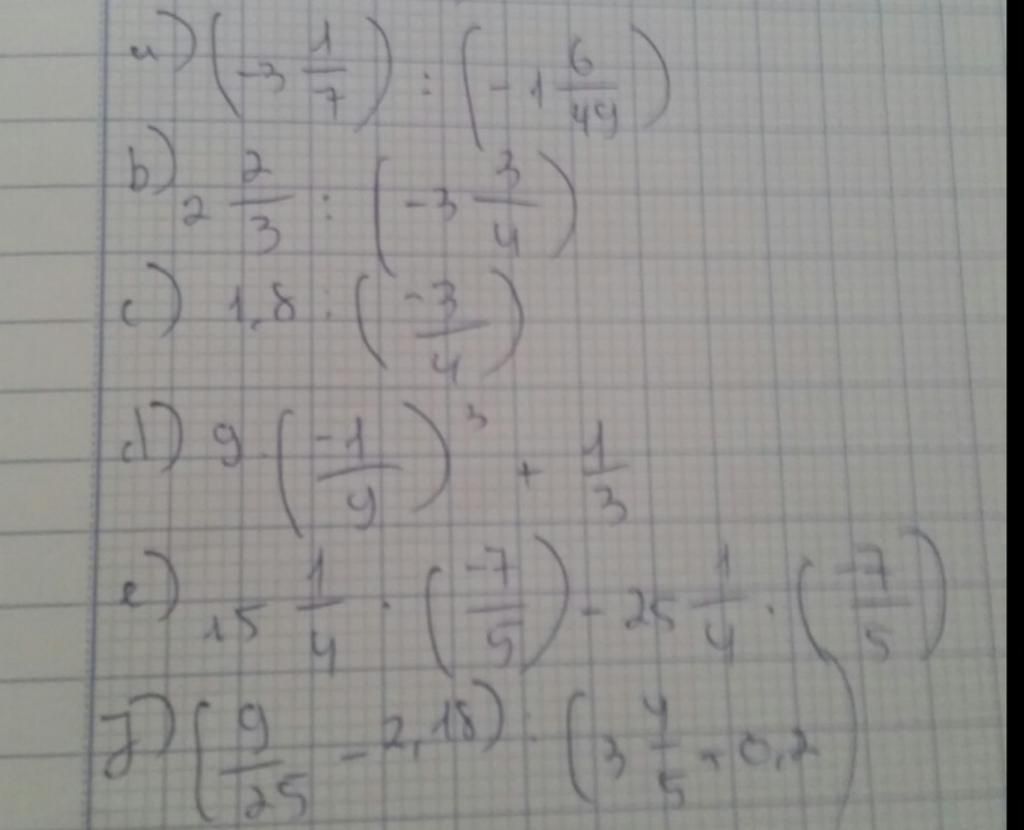 a) (-3 1/7) : (-1 6/49)
b) 2 2/3 : (-3 3/4)
c) 1,8 : (-3/4)
d) 9 · (-1/9)³ + 1/3
e) 15 1/4 · (-7/5) - 25 1/4 · (-7/5)
f) (9/25 - 2,18) : (3 4/5 + 0,2)